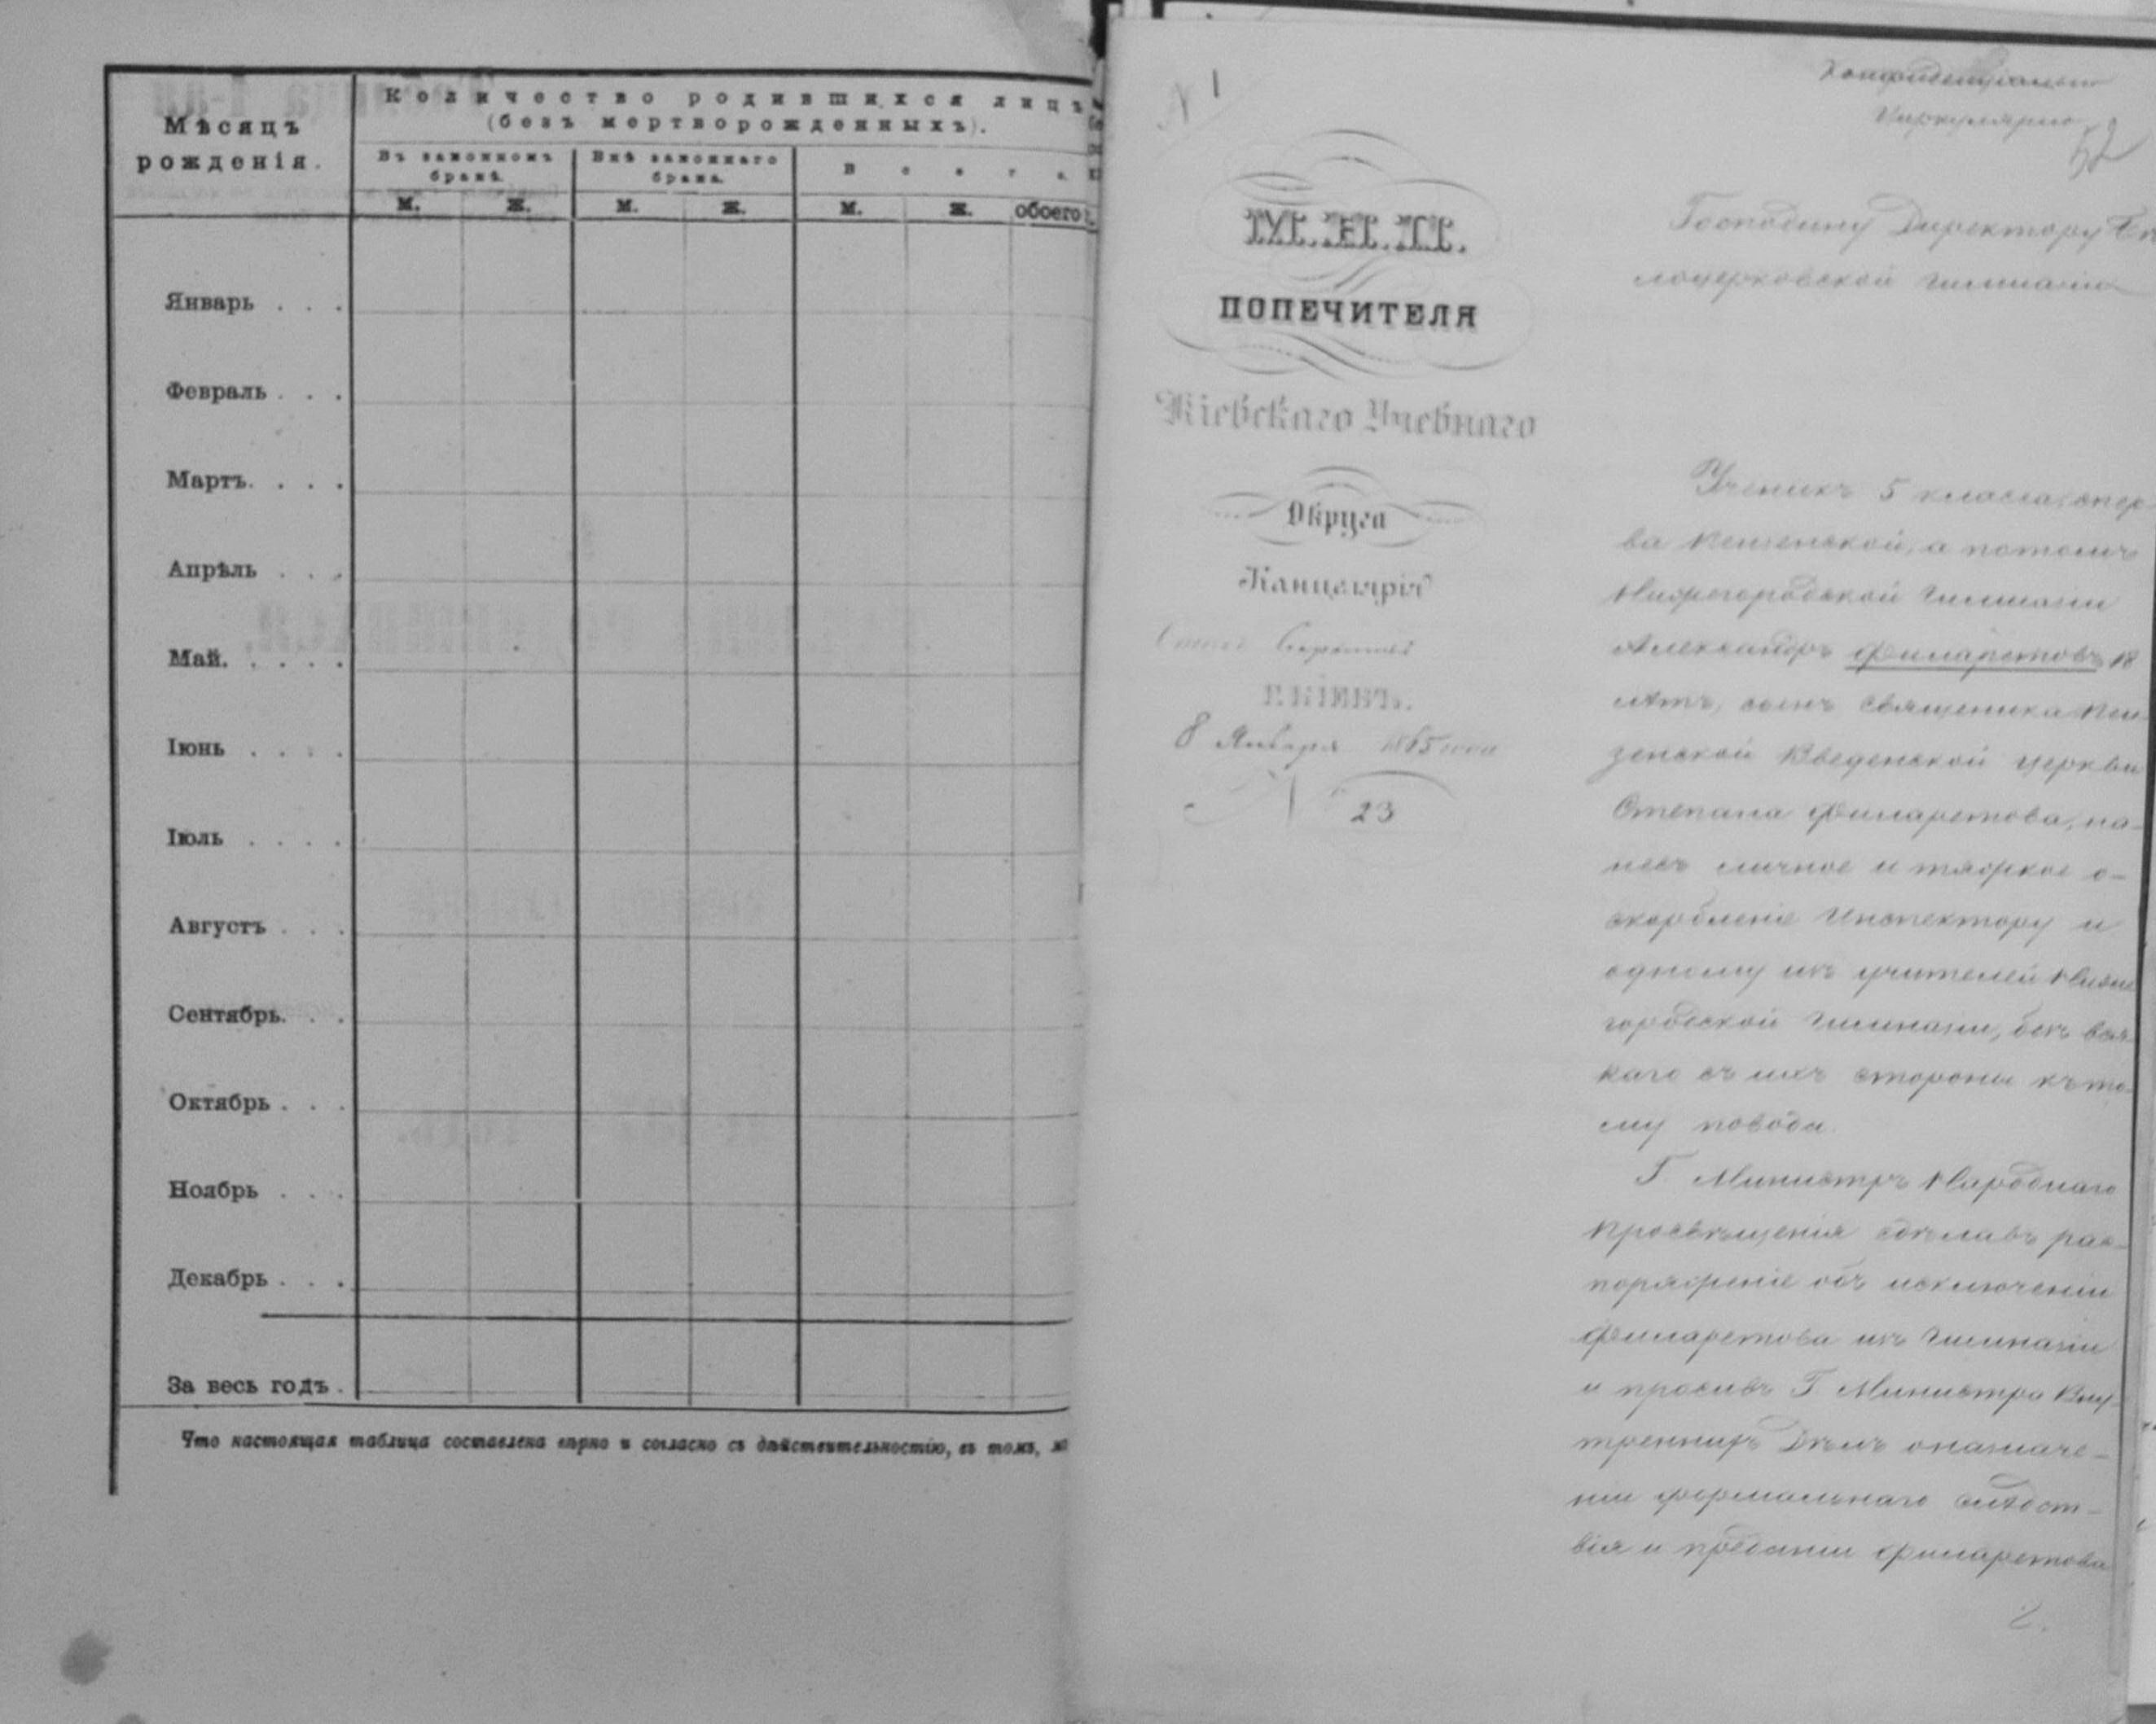 Мѣсяцъ
рожденія.
Количество родившихся лицъ
(безъ мертворожденныхъ).
Въ законномъ
бракѣ.
Внѣ законнаго
брака.
Всего.
М. Ж. М. Ж. М. Ж. обоего
Январь . . .
Февраль . . .
Мартъ. . . .
Апрѣль . . .
Май. . . . .
Іюнь . . . .
Іюль . . . .
Августъ . . .
Сентябрь. . .
Октябрь . . .
Ноябрь . . .
Декабрь . . .
За весь годъ .
Что настоящая таблица составлена вѣрно и согласно съ дѣйствительностію, въ томъ,
№ 1
М.Н.П.
ПОПЕЧИТЕЛЯ
Кіевскаго Учебнаго
Округа
Канцелярія
Г. КІЕВЪ.
8 Января 1865 года
№ 23
Конфиденціально
Циркулярно
52
Господину Директору Бѣ
лоцерковской Гимназіи
Ученикъ 5 класса, спер
ва Пензенской, а потомъ
Нижегородской Гимназіи
Александръ Филаретовъ, 18
лѣтъ, сынъ священника Пен
зенской Введенской церкви
Степана Филаретова, на-
несъ личное и тяжкое о-
скорбленіе Инспектору и
одному изъ учителей Ниже
городской Гимназіи, безъ вся
каго съ ихъ стороны къ то-
му повода.
Г. Министръ Народнаго
Просвѣщенія сдѣлавъ рас-
поряженіе объ исключеніи
Филаретова изъ Гимназіи
и просивъ Г. Министра Вну-
треннихъ Дѣлъ о назначе-
ніи формальнаго слѣдст-
вія и преданіи Филаретова
2.